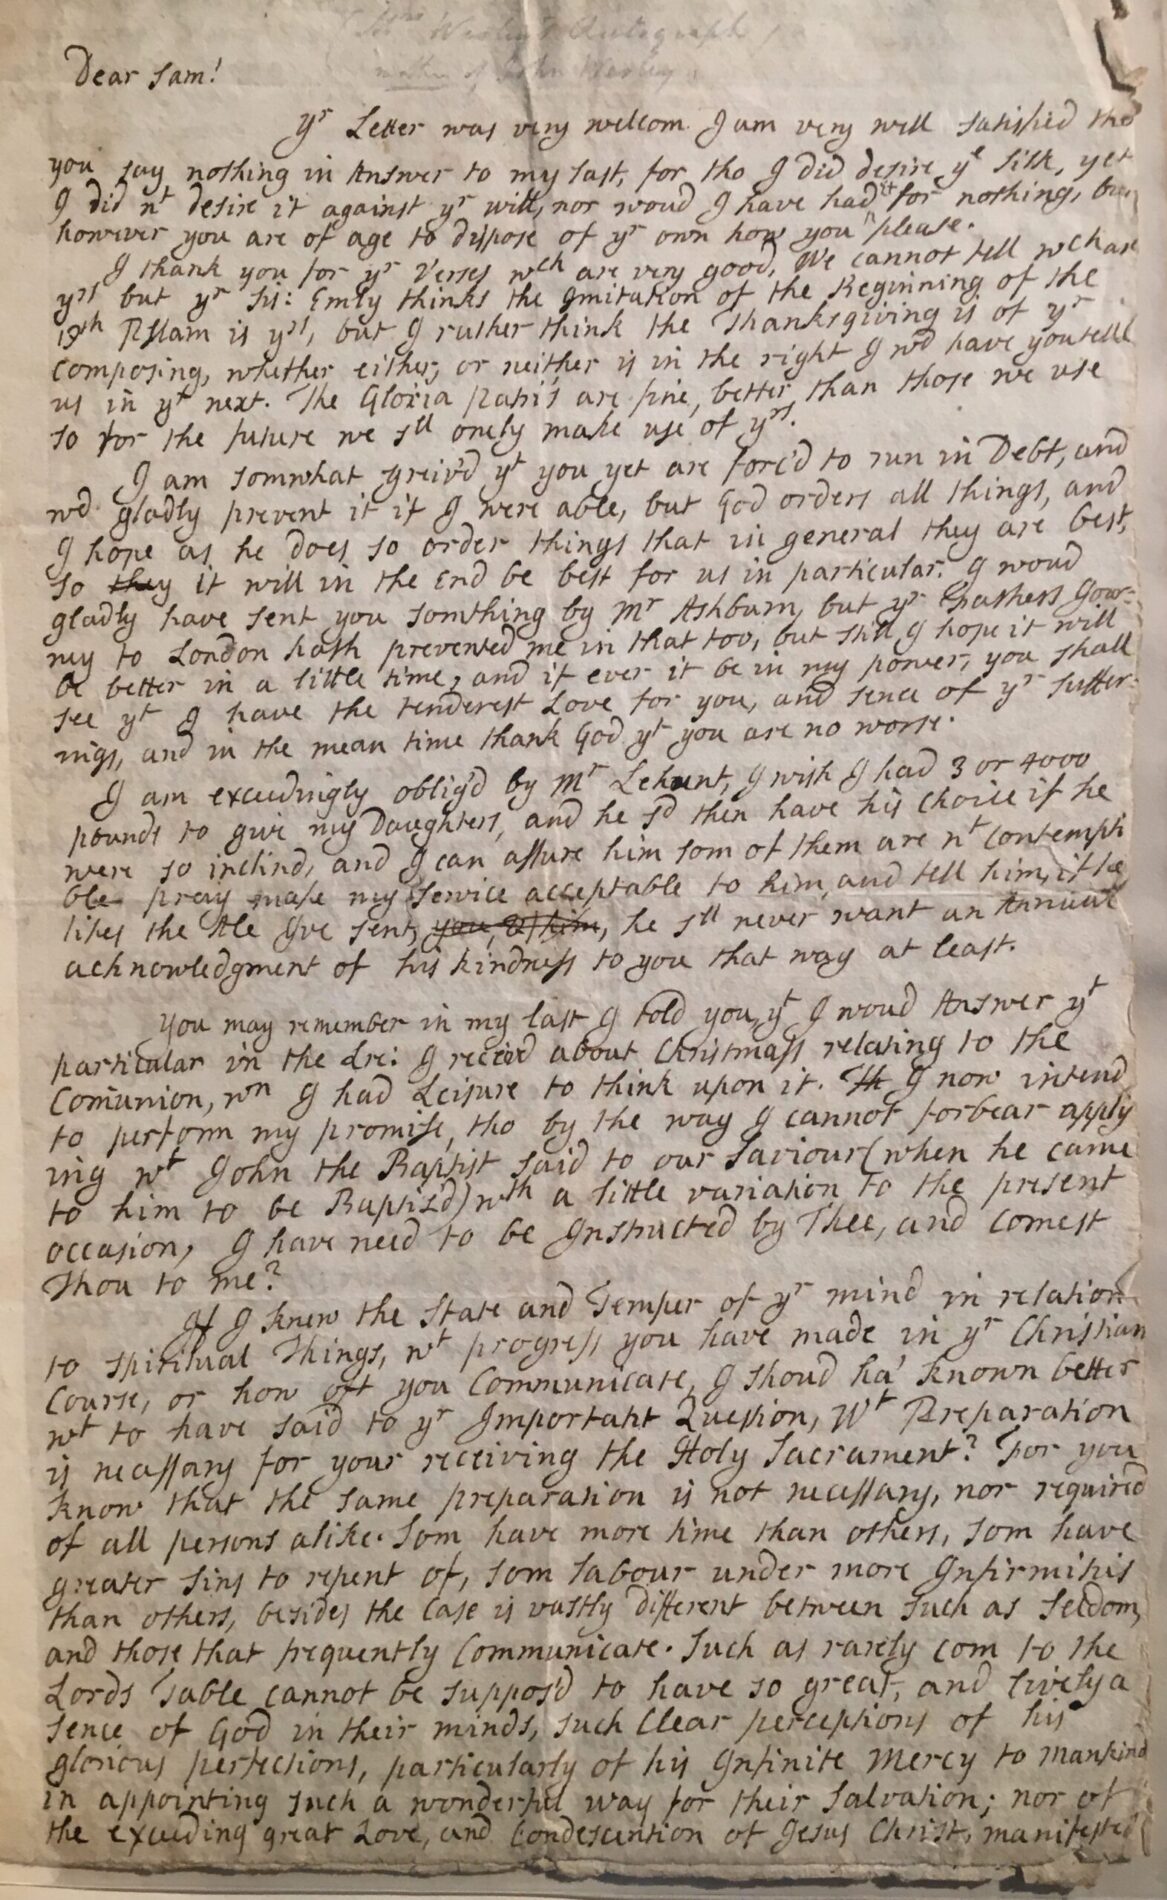 Mrs Wesley's Autograph
mother of John Wesley.
Dear Sam!
yr Letter was very wellcom I am very well satisfied tho
you say nothing in Answer to my last, for tho I did desire ye silk, yet
I did nt desire it against yr will, nor woud I have had it for nothing, but
however you are of age to dispose of yr own how you please.
I thank you for yr Verses wch are very good, We cannot tell wch are
yrs but yr sis: Emly thinks the Imitation of the Beginning of the
Psalm is yrs, but I rather think the Thanksgiving is of yr
Composing, whether either, or neither is in the right I wd have you tell
us in yr next. The Gloria Patri's are fine, better than those we use
so for the future we sll onely make use of yrs.
I am somwhat greiv'd yt you yet are forc'd to run in Debt, and
wd gladly prevent it if I were able, but God orders all things, and
I hope as he does so order things that in general they are best,
so they it will in the End be best for us in particular. I woud
gladly have sent you somthing by Mr Ashburn, but yr Fathers Gour-
ney to London hath prevented me in that too, but still I hope it will
be better in a little time, and if ever it be in my power, you shall
see yt I have the tenderest Love for you, and sence of yr suffer-
ings, and in the mean time thank God yt you are no worse.
I am exceedingly oblig'd by Mr Lehunt, I wish I had 3 or 4000
pounds to give my Daughters, and he sd then have his Choice if he
were so inclind, and I can assure him som of them are nt Contempti
ble pray make my Service acceptable to him, and tell him, if he
likes the Ale I've sent, you, &, him, he sll never want an Annual
acknowledgment of his kindness to you that way at least.
You may remember in my last I told you, yt I woud Answer yt
particular in the Lre: I receivd about Christmass relating to the
Comunion, wn I had Leisure to think upon it. Th I now intend
to perform my promise, tho by the way I cannot forbear apply
ing wt John the Baptist said to our Saviour (when he came
to him to be Baptis'd) wth a little variation to the present
occasion, I have need to be Instructed by Thee, and Comest
Thou to me?
If I knew the State and Temper of yr mind in relation
to spiritual Things, wt progress you have made in yr Christian
Course, or how oft you Communicate, I shoud ha' known better
wt to have said to yr Important Question, Wt Preparation
is necessary for your receiving the Holy Sacrament? For you
know that the same preparation is not necessary, nor required
of all persons alike. Som have more time than others, som have
greater sins to repent of, som labour under more Infirmitis
than others, besides the Case is vastly different between such as seldom,
and those that frequently Communicate. Such as rarely com to the
Lords Table cannot be suppos'd to have so great, and lively a
sence of God in their minds, such Clear perceptions of his
glorious perfections, particularly of his Infinite Mercy to mankind
in appointing such a wonderful way for their Salvation; nor of
the exceeding great Love, and Condescention of Jesus Christ, manifested